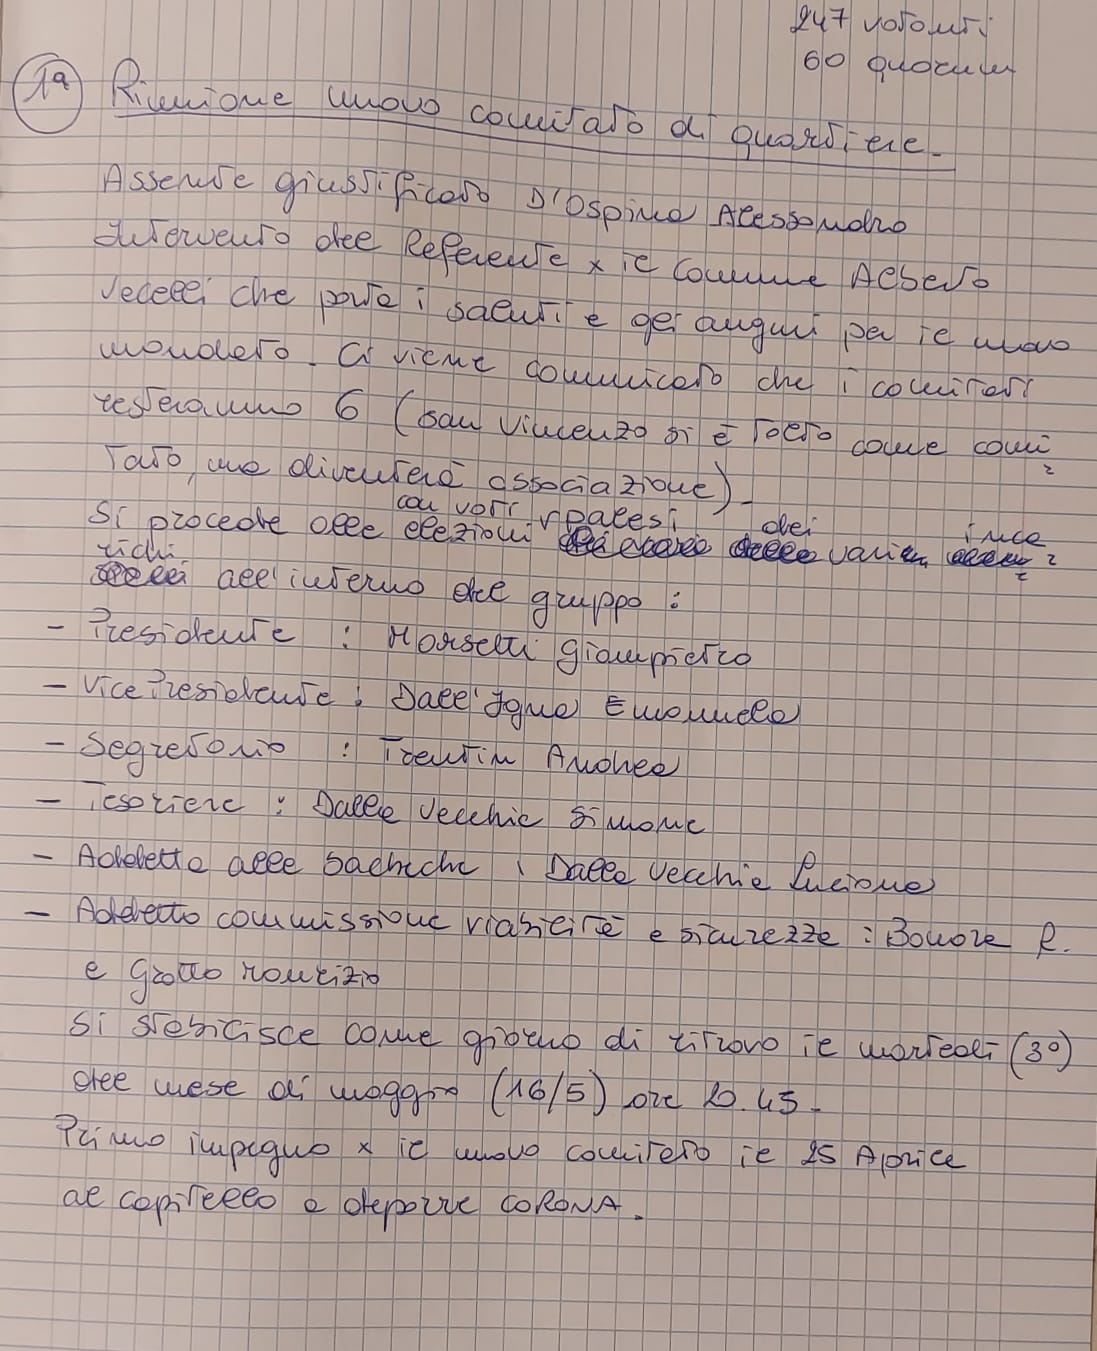 247 votanti
60 quorum
1ª Riunione nuovo comitato di quartiere.
Assente giustificato D'Ospina Alessandro
Intervento del Referente x il Comune Alberto
Vecelli che porta i saluti e gli auguri per il nuovo
mandato. Ci viene comunicato che i comitati
resteranno 6 (San Vincenzo si è tolto come comi
tato, ma diventerà associazione).
con voti palesi dei inca
Si procede alle elezioni vari
richi
all'interno del gruppo :
- Presidente : Morsetti Giampietro
- Vice Presidente : Dall'Igna Emanuela
- Segretario : Trentin Andrea
- Tesoriere : Dalle Vecchie Simone
- Addetto alle bacheche : Dalla Vecchia Luciano
- Addetto commissione viabilità e sicurezza : Bonora R.
e Grotto Maurizio
Si stabilisce come giorno di ritrovo il martedì (3º)
del mese di maggio (16/5) ore 20.45.
Primo impegno x il nuovo comitato il 25 Aprile
al capitello a deporre CORONA.